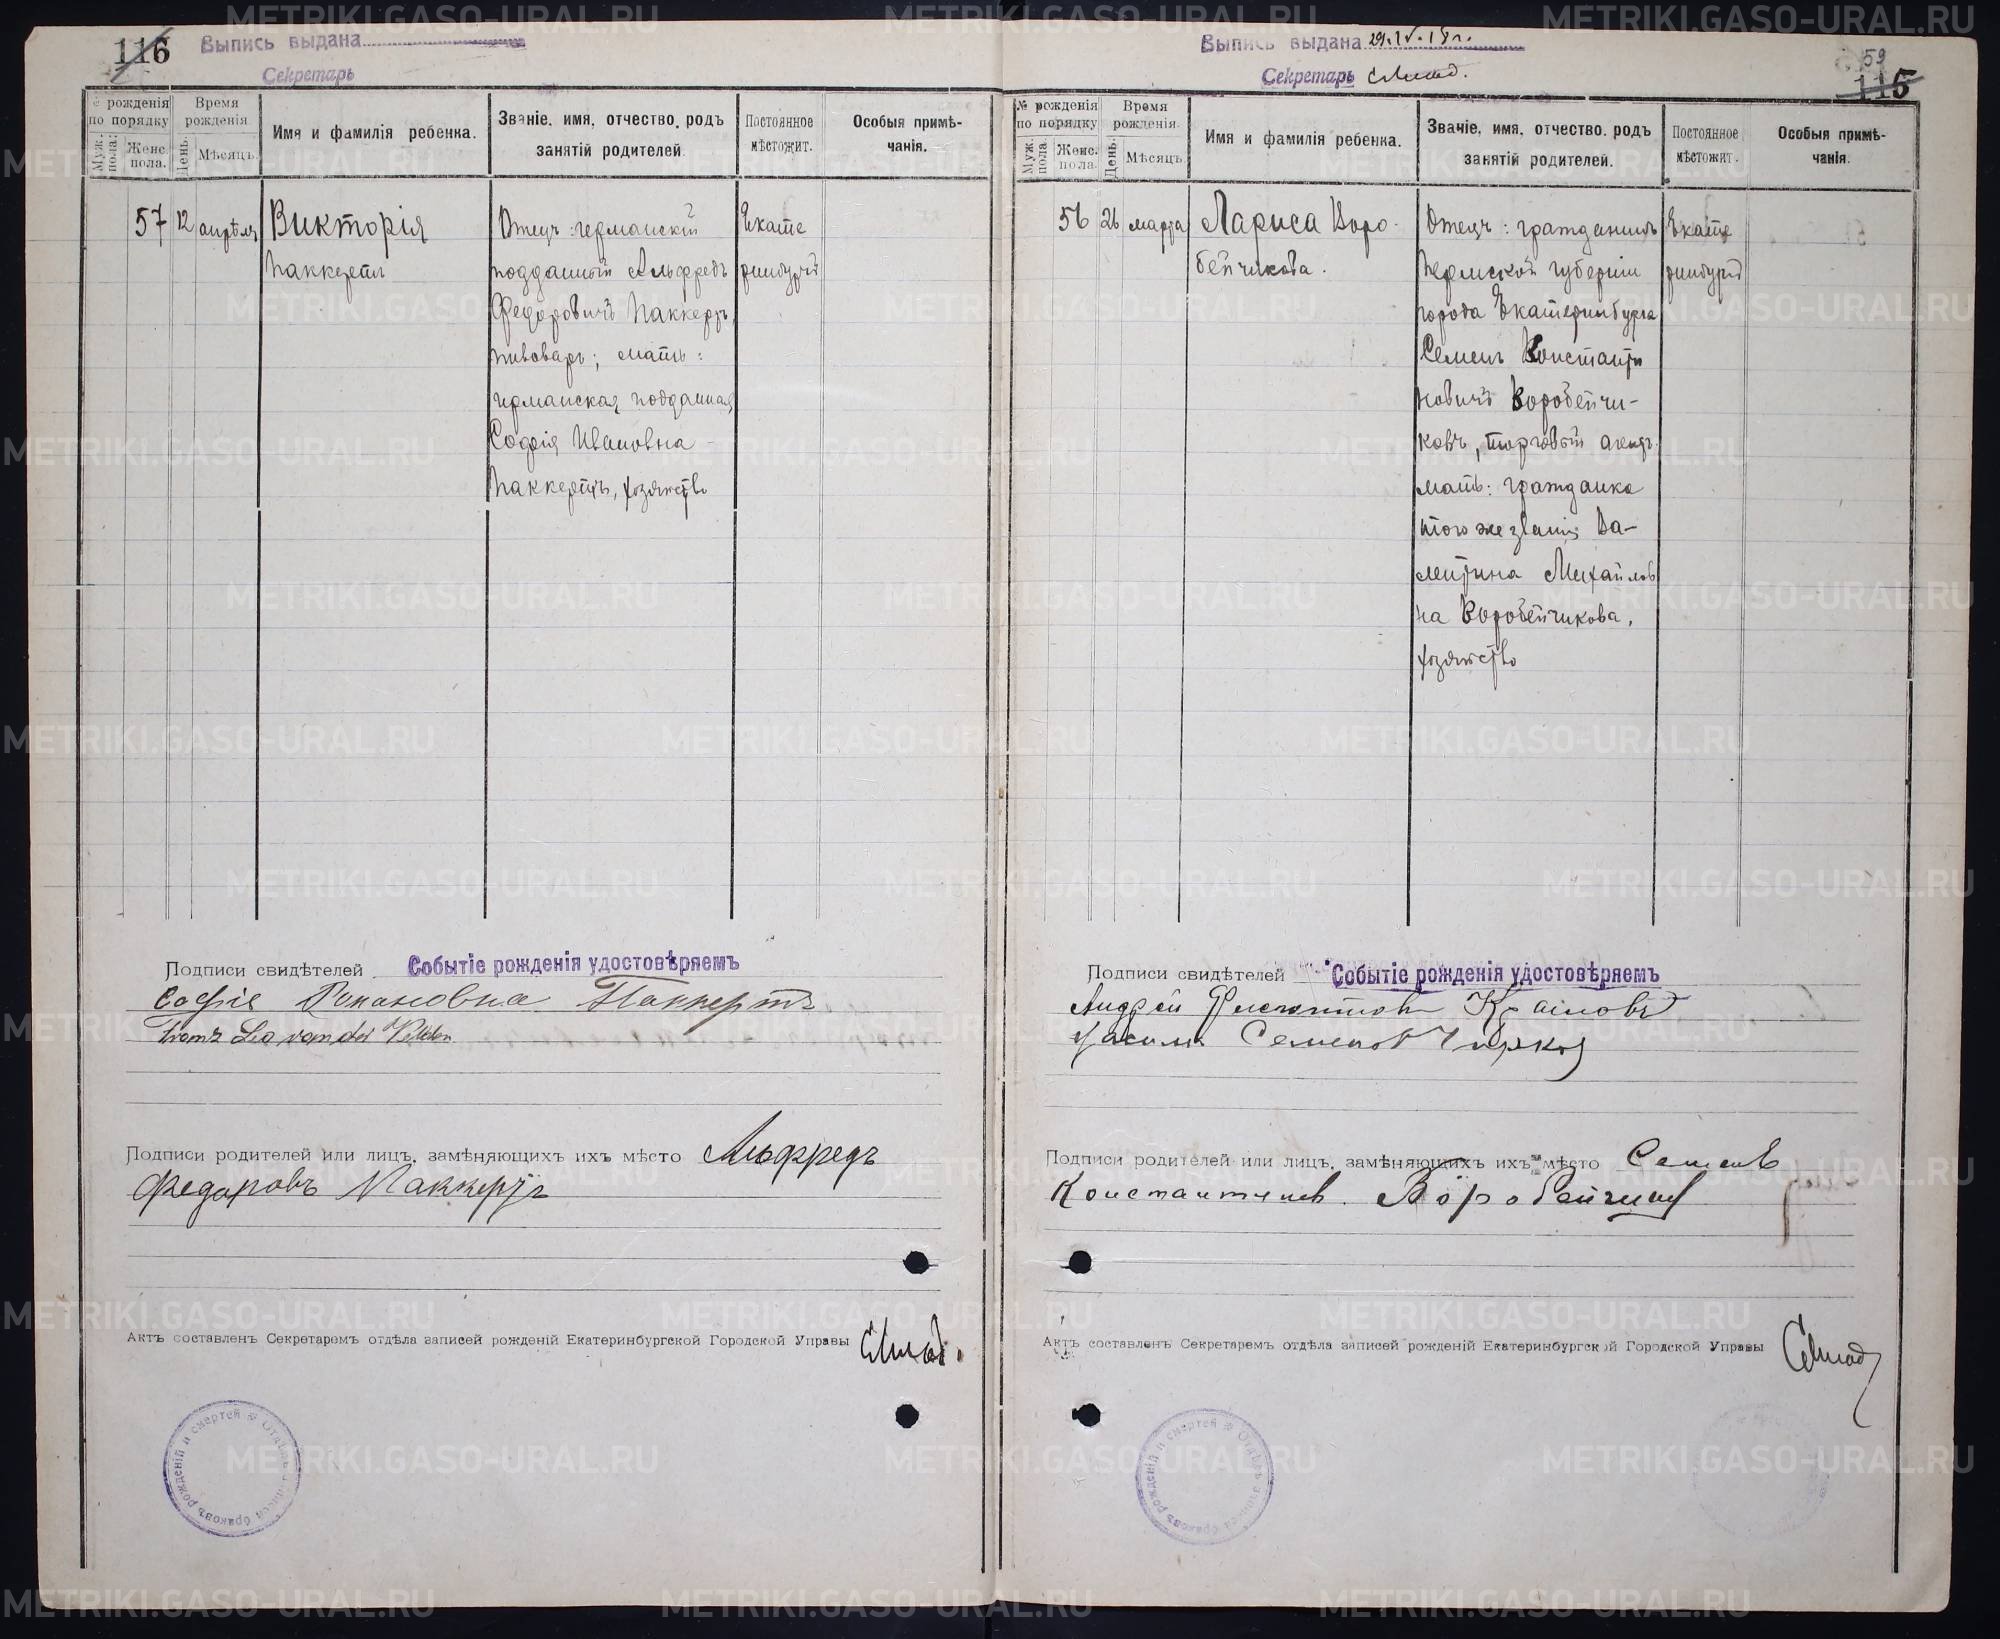 116
Выпись выдана
Секретарь
№ рожденія по порядку
Муж. пола.
Женс. пола.
Время рожденія
День.
Мѣсяцъ.
Имя и фамилія ребенка.
Званіе, имя, отчество, родъ занятій родителей.
Постоянное мѣстожит.
Особыя примѣчанія.
57 12 апрѣля
Викторія
Паккертъ
Отецъ: германскій
подданный Альфредъ
Федоровичъ Паккертъ,
пивоваръ; мать:
германская подданная
Софія Ивановна
Паккертъ, хозяйство
Екате
ринбургъ
Подписи свидѣтелей Событіе рожденія удостовѣряемъ
Софія Паккертъ
Franz Leo van der
Подписи родителей или лицъ, замѣняющихъ ихъ мѣсто Альфредъ
Федоровъ Паккертъ
Актъ составленъ Секретаремъ отдѣла записей рожденій Екатеринбургской Городской Управы
Отдѣлъ записей браковъ рожденій и смертей
Выпись выдана 29.IV.18 г.
Секретарь
59
115
№ рожденія по порядку
Муж. пола.
Женс. пола.
Время рожденія.
День.
Мѣсяцъ
Имя и фамилія ребенка.
Званіе, имя, отчество, родъ занятій родителей.
Постоянное мѣстожит.
Особыя примѣчанія.
56 26 марта
Лариса Воро-
бейчикова.
Отецъ: гражданинъ
Пермской губерніи
города Екатеринбурга
Семенъ Константи
новичъ Воробейчи-
ковъ, торговый агентъ.
мать: гражданка
того же званія Ва-
лентина Михайлов
на Воробейчикова,
хозяйство
Екате
ринбургъ
Подписи свидѣтелей Событіе рожденія удостовѣряемъ
Андрей
Семенов
Подписи родителей или лицъ, замѣняющихъ ихъ мѣсто Семенъ
Константинов. Воробейчиков
Актъ составленъ Секретаремъ отдѣла записей рожденій Екатеринбургской Городской Управы
Отдѣлъ записей браковъ рожденій и смертей
METRIKI.GASO-URAL.RU